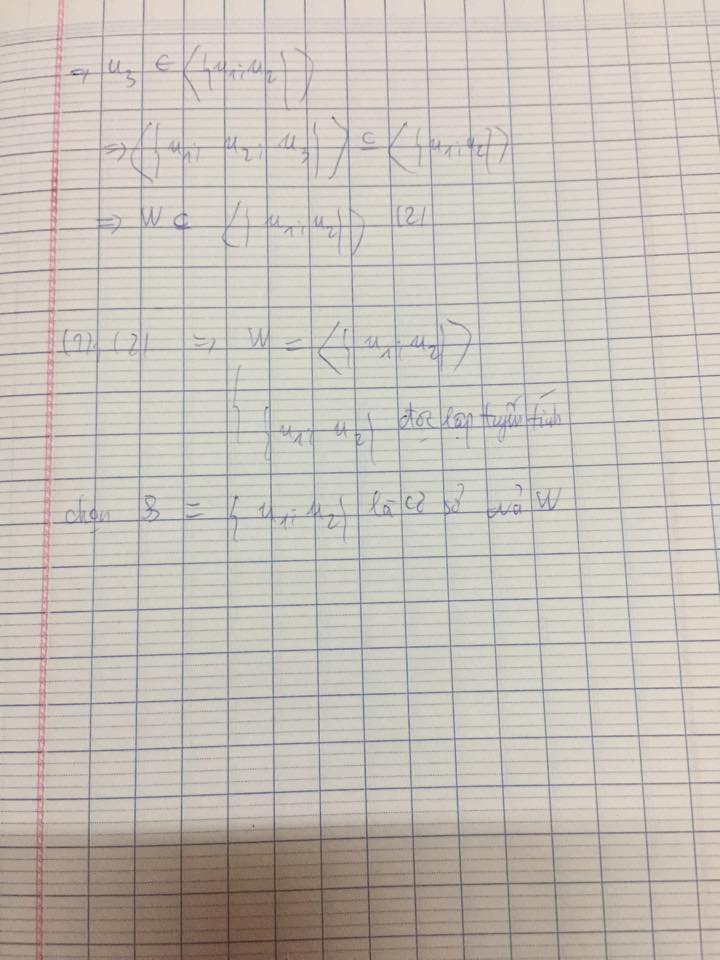 ⇒ u₃ ∈ ⟨{u₁; u₂}⟩
⇒ ⟨{u₁; u₂; u₃}⟩ ⊆ ⟨{u₁; u₂}⟩
⇒ W ⊂ ⟨{u₁; u₂}⟩ (2)
(1), (2) ⇒ W = ⟨{u₁; u₂}⟩
{u₁; u₂} độc lập tuyến tính
chọn B = {u₁; u₂} là cơ sở của W